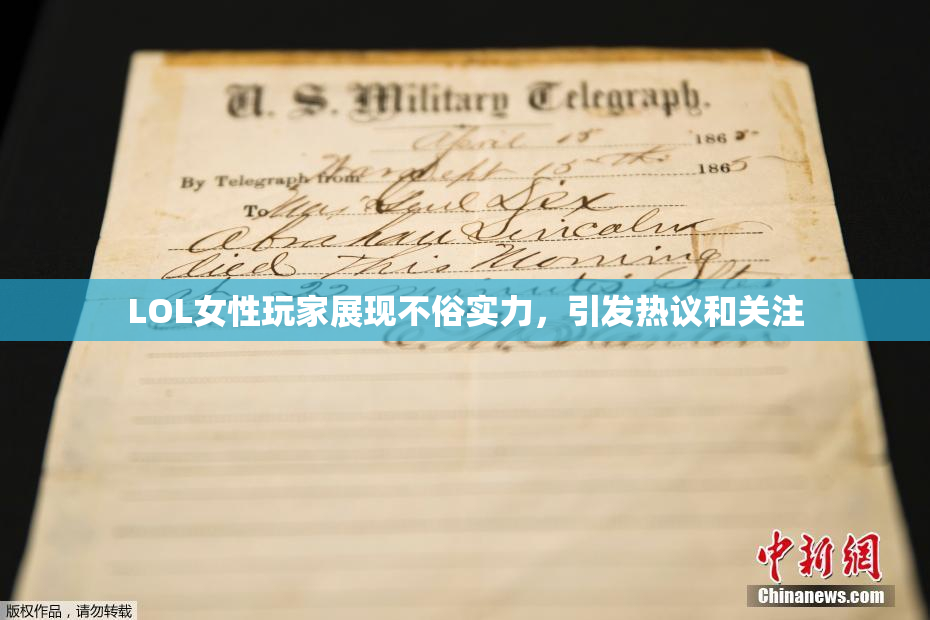 U. S. Military Telegraph.
April 15 1865
By Telegraph from War Dept 15th 1865
To Maj Genl Dix
Abraham Lincoln
died This Morning
at 22 minutes after
LOL女性玩家展现不俗实力，引发热议和关注
E. M. Stanton
中新网
Chinanews.com
版权作品，请勿转载